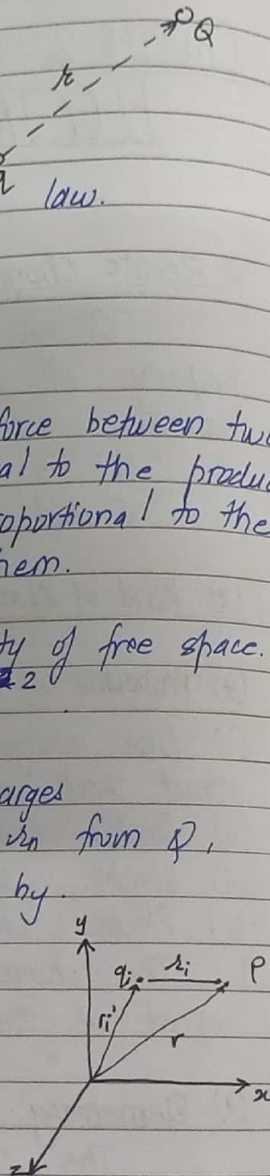 r
Q
q
law.
force between two
al to the produc
oportional to the
hem.
ty of free space.
2
arges
rn from Q,
by.
y
qi ri P
ri' r
x
z